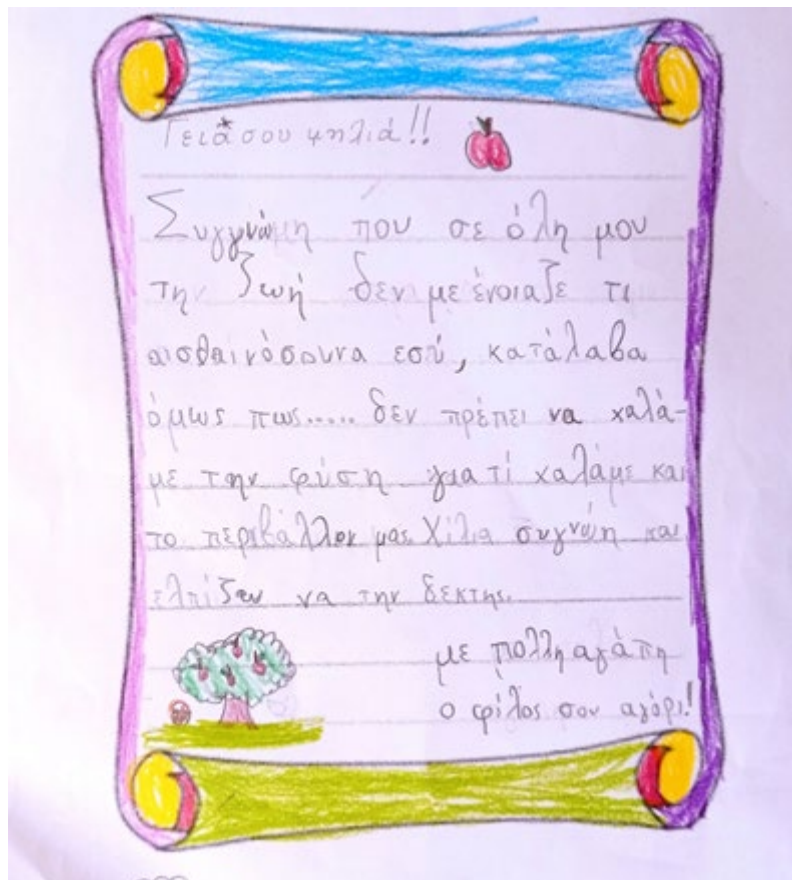 Γειά σου μηλιά!!
Συγγνώμη που σε όλη μου
την ζωή δεν με ένοιαζε τι
αισθαινόσουνα εσύ, κατάλαβα
όμως πως..... δεν πρέπει να χαλά-
με την φύση γιατί χαλάμε και
το περιβάλλον μας. Χίλια συγνώμη και
ελπίζω να την δεκτης.
με πολλη αγάπη
ο φίλος σου αγόρι!